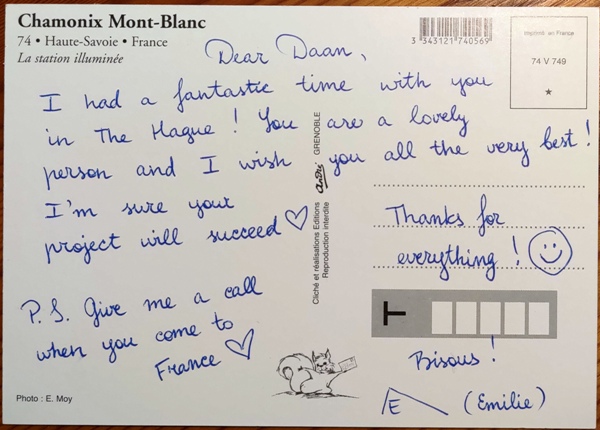 Chamonix Mont-Blanc
74 • Haute-Savoie • France
La station illuminée
3 343121 740569
Imprimé en France
74 V 749
Dear Daan,
I had a fantastic time with you
in The Hague! You are a lovely
person and I wish you all the very best!
I'm sure your
project will succeed ♡
P.S. Give me a call
when you come to
France ♡
Thanks for
everything! ☺
Bisous!
E (Emilie)
Cliché et réalisations Editions André GRENOBLE
Reproduction interdite
Photo : E. Moy